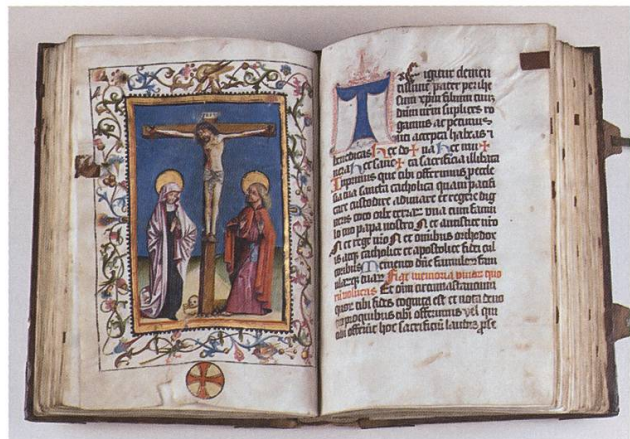 INRI
Te igitur clemen
tissime pater per ihe
sum xpm filium tuū
dūm nrm supplices ro
gamus ac petimus
uti accepta habeas ⁊
benedicas Hec do✝na Hec mu✝
nera Hec sancta✝ sacrificia illibata
Inprimis que tibi offerimus p eccle
sia tua sancta catholica quam pacifi
care custodire adunare et regere dig
neris toto orbe terrarꝫ una cum famu
lo tuo papa nostro N et antistite nro
N et rege nro N et omnibus orthodox
is atqꝫ catholice et apostolice fidei cul
toribus Memento dne famuloꝝ fam
ularūqꝫ tuaꝝ Fiat memoria vivoꝝ quo
rū volueris Et oīm circumstantium
quoꝝ tibi fides cognita est et nota devo
tio pro quibus tibi offerimus vel qui
tibi offerūt hoc sacrificiū laudis p se